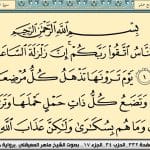 بِسْمِ اللَّهِ الرَّحْمَٰنِ الرَّحِيمِ
النَّاسُ اتَّقُوا رَبَّكُمْ إِنَّ زَلْزَلَةَ السَّاعَ
يَوْمَ تَرَوْنَهَا تَذْهَلُ كُلُّ مُرْضِعَ
وَتَضَعُ كُلُّ ذَاتِ حَمْلٍ حَمْلَهَا وَتَر
وَمَا هُم بِسُكَارَىٰ وَلَٰكِنَّ عَذَابَ اللَّهِ
صفحة ٣٣٢ الحزب ٣٤ الجزء ١٧ بصوت الشيخ ماهر المعيقلي برواية